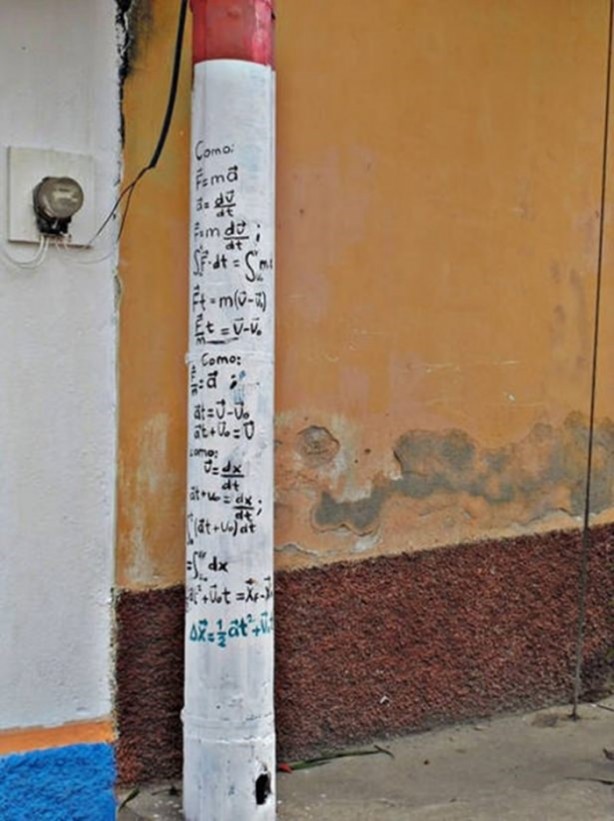 Como:
F⃗=ma⃗
a⃗=dv⃗/dt
F⃗=m dv⃗/dt ;
∫F⃗·dt = ∫m
F⃗t = m(v⃗-u⃗)
F⃗t/m = v⃗-v⃗₀
Como:
F⃗/m=a⃗ ;
a⃗t=v⃗-v⃗₀
a⃗t+v⃗₀=v⃗
Como:
v⃗=dx/dt
a⃗t+u₀=dx/dt ;
∫(a⃗t+u₀)dt
=∫dx
t²+v⃗₀t =X⃗f-X⃗
ΔX⃗=½a⃗t²+v⃗